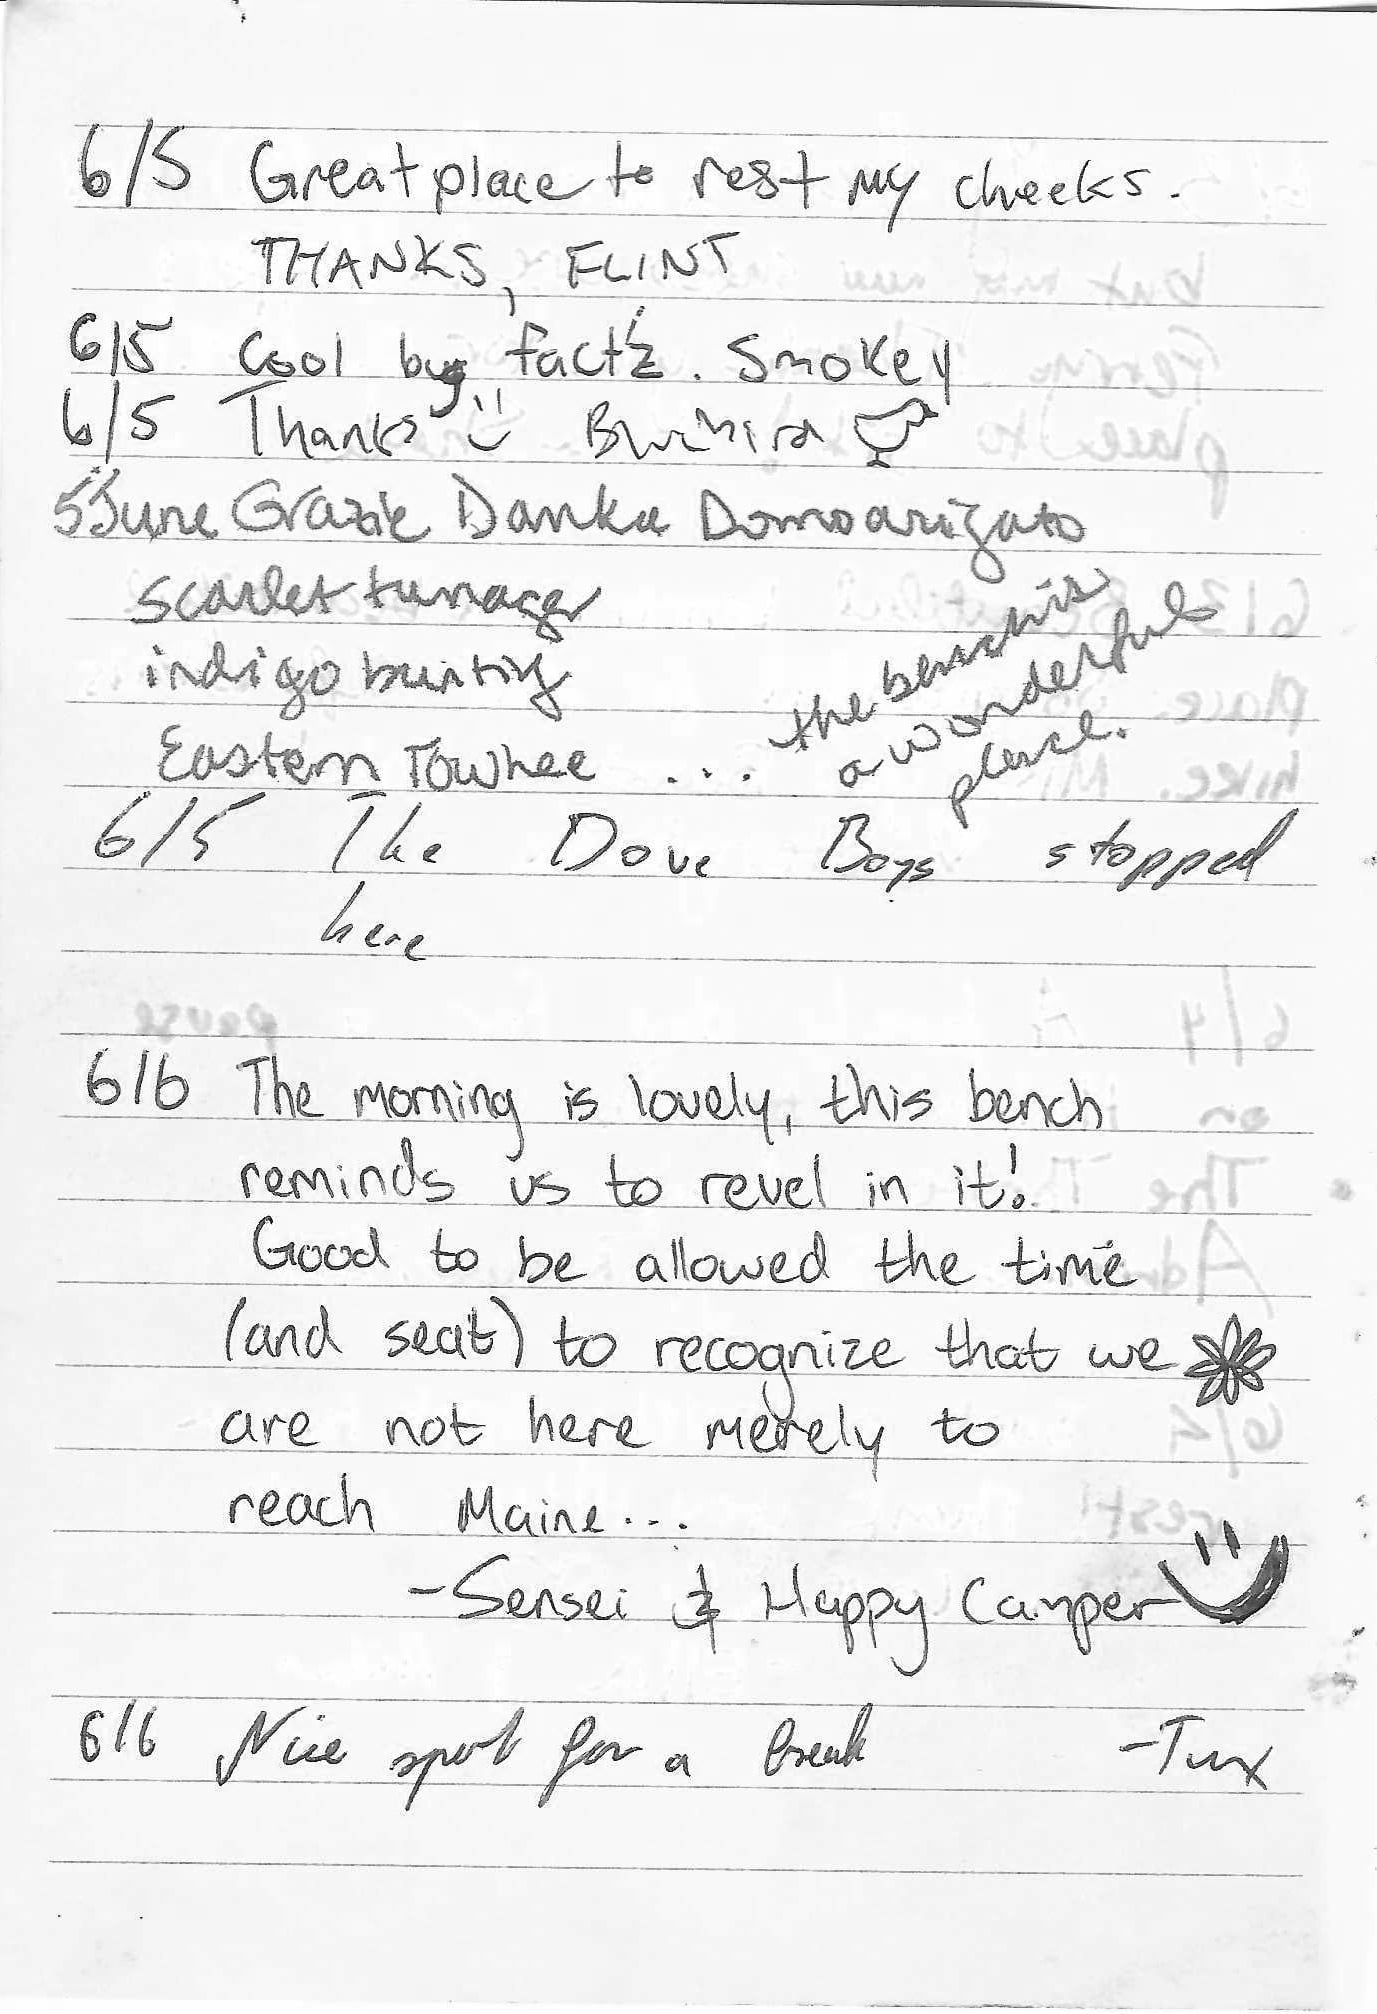 6/5 Great place to rest my cheeks.
THANKS, FLINT
6/5 Cool bug fact'z. Smokey
6/5 Thanks :)
5 June Grazie Danke Domoarigato
scarlet tanager
indigo bunting
Eastern Towhee ... the bench is
a wonderful
place.
6/5 The Dove Boys stopped
here
6/6 The morning is lovely, this bench
reminds us to revel in it!
Good to be allowed the time
(and seat) to recognize that we
are not here merely to
reach Maine...
-Sensei & Happy Camper
6/6 Nice spot for a break -Tux